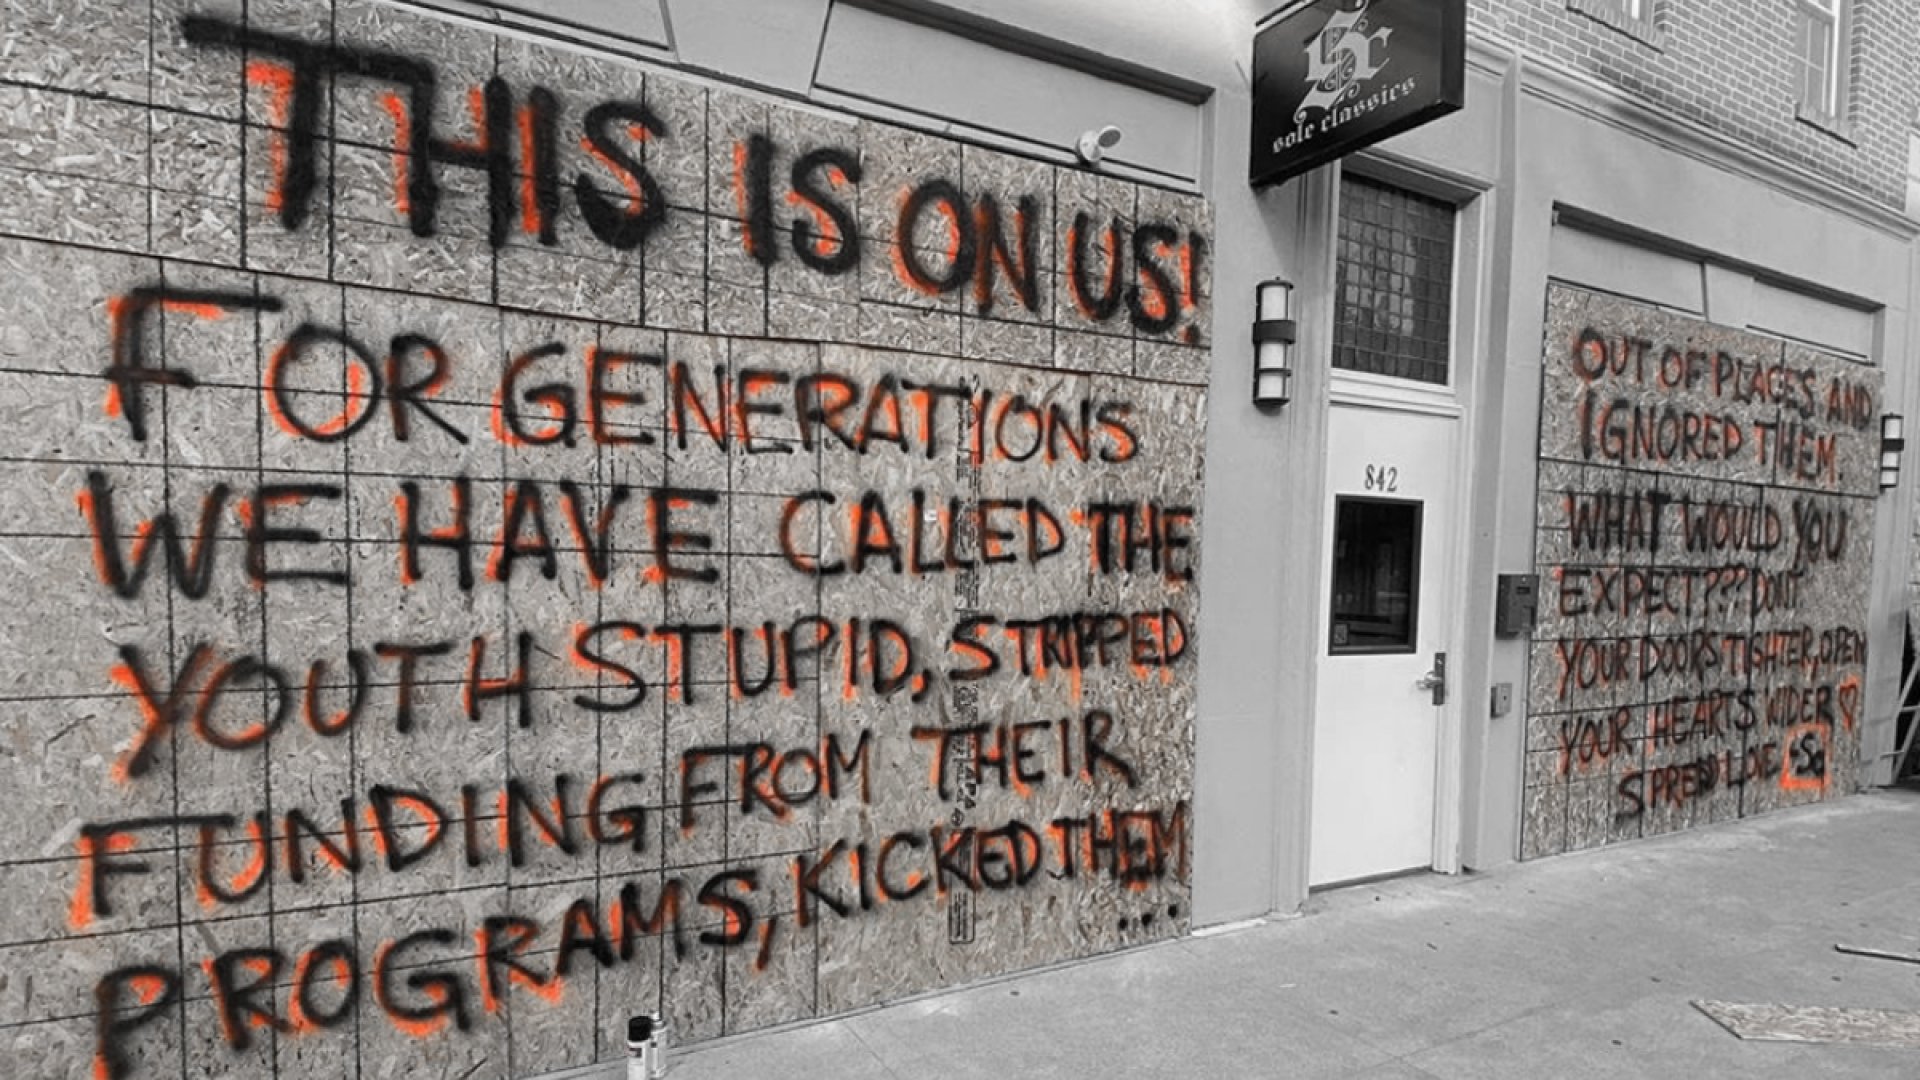 THIS IS ON US!
FOR GENERATIONS
WE HAVE CALLED THE
YOUTH STUPID, STRIPPED
FUNDING FROM THEIR
PROGRAMS, KICKED THEM
...
Sc
sole classics
842
OUT OF PLACES AND
IGNORED THEM.
WHAT WOULD YOU
EXPECT??? DONT
YOUR DOORS TIGHTER, OPEN
YOUR HEARTS WIDER ♡
SPREAD LOVE